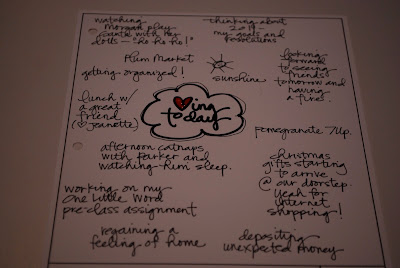 watching
Morgan play
Santa with her
dolls - "ho ho ho!"
thinking about
2011 -
my goals and
resolutions
Plum Market
getting organized!
sunshine
looking
forward
to seeing
friends
tomorrow and
having
a fire.
lunch w/
a great
friend
(♡ Jeanette)
♥ing
today
pomegranate 7up.
afternoon catnaps
with Parker and
watching him sleep.
christmas
gifts starting
to arrive
@ our doorstep.
yeah for
internet
shopping!
working on my
One Little Word
pre-class assignment
regaining a
feeling of home
depositing
unexpected money